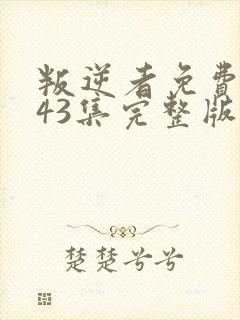 叛逆者免費
43集完整版
楚楚兮兮